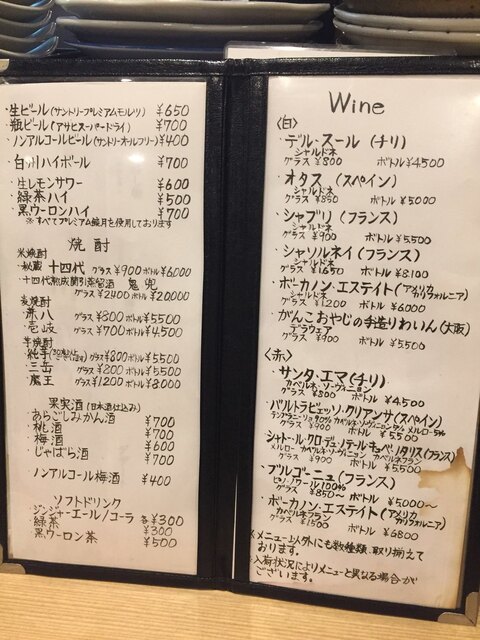 ・生ビール(サントリープレミアムモルツ) ¥650
・瓶ビール(アサヒスーパードライ) ¥700
・ノンアルコールビール(サントリーオールフリー) ¥400
・白州ハイボール ¥700
・生レモンサワー ¥600
・緑茶ハイ ¥500
・黒ウーロンハイ ¥700
※すべてプレミアム鏡月を使用しております
焼酎
米焼酎
・秘蔵 十四代 グラス¥900 ボトル¥6,000
・十四代熟成蘭引蒸留酒 鬼兜
グラス¥2400 ボトル¥20,000
麦焼酎
・兼八 グラス¥800 ボトル¥5500
・壱岐 グラス¥700 ボトル¥4,500
芋焼酎
グラス¥800 ボトル¥5500
・三岳 グラス¥800 ボトル¥5500
・魔王 グラス¥1200 ボトル¥8000
果実酒(日本酒仕込み)
・あらごしみかん酒 ¥700
・桃酒 ¥700
・梅酒 ¥600
・じゃばら酒 ¥700
・ノンアルコール梅酒 ¥400
ソフトドリンク
・ジンジャーエール/コーラ 各¥300
・緑茶 ¥300
・黒ウーロン茶 ¥500
Wine
〈白〉
・デル・スール (チリ)
シャルドネ
グラス ¥800 ボトル ¥4500
・オタス (スペイン)
シャルドネ
グラス ¥850 ボトル ¥5,000
・シャブリ (フランス)
シャルドネ
グラス ¥900 ボトル ¥5,500
・シャソルネイ (フランス)
シャルドネ
グラス ¥1650 ボトル ¥8,100
・ボーカノン・エステイト (アメリカ カリフォルニア)
シャルドネ
グラス ¥1200 ボトル ¥6,000
・がんこおやじの手造りわいん (大阪)
デラウェア
グラス ¥900 ボトル ¥5,500
〈赤〉
・サンタ・エマ (チリ)
カベルネ・ソーヴィニョン
グラス ¥800 ボトル ¥4500
・バルトラビエッソ・クリアンサ(スペイン)
テンプラニーリョ90% カベルネ・ソーヴィニョン5% メルロー5%
グラス ¥900 ボトル ¥5,500
・シャトー・ル・クロ・デュ・ノテール・キュベ・ノタリス(フランス)
メルロー カベルネ・ソーヴィニョン カベルネフラン
グラス ¥900 ボトル ¥5,500
・ブルゴーニュ (フランス)
ピノ・ノワール100%
グラス ¥850〜 ボトル ¥5,000〜
・ボーカノン・エステイト (アメリカ カリフォルニア)
カベルネフラン
グラス ¥1500 ボトル ¥6800
※メニュー以外にも数種類、取り揃えて
おります。
※入荷状況によりメニューと異なる場合が
ございます。